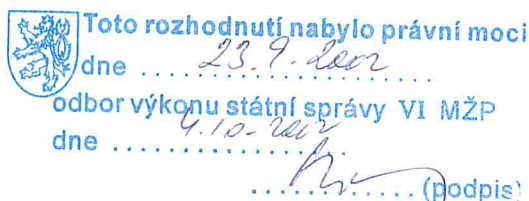 Toto rozhodnutí nabylo právní moci
dne 23.9.2002
odbor výkonu státní správy VI MŽP
dne 4.10.2002
(podpis)